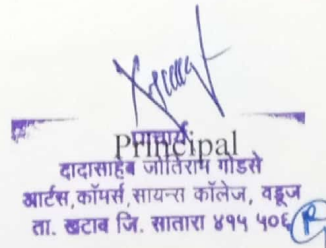 प्राचार्य
Principal
दादासाहेब जोतिराम गोडसे
आर्टस,कॉमर्स,सायन्स कॉलेज, वडूज
ता. खटाव जि. सातारा ४१५ ५०६